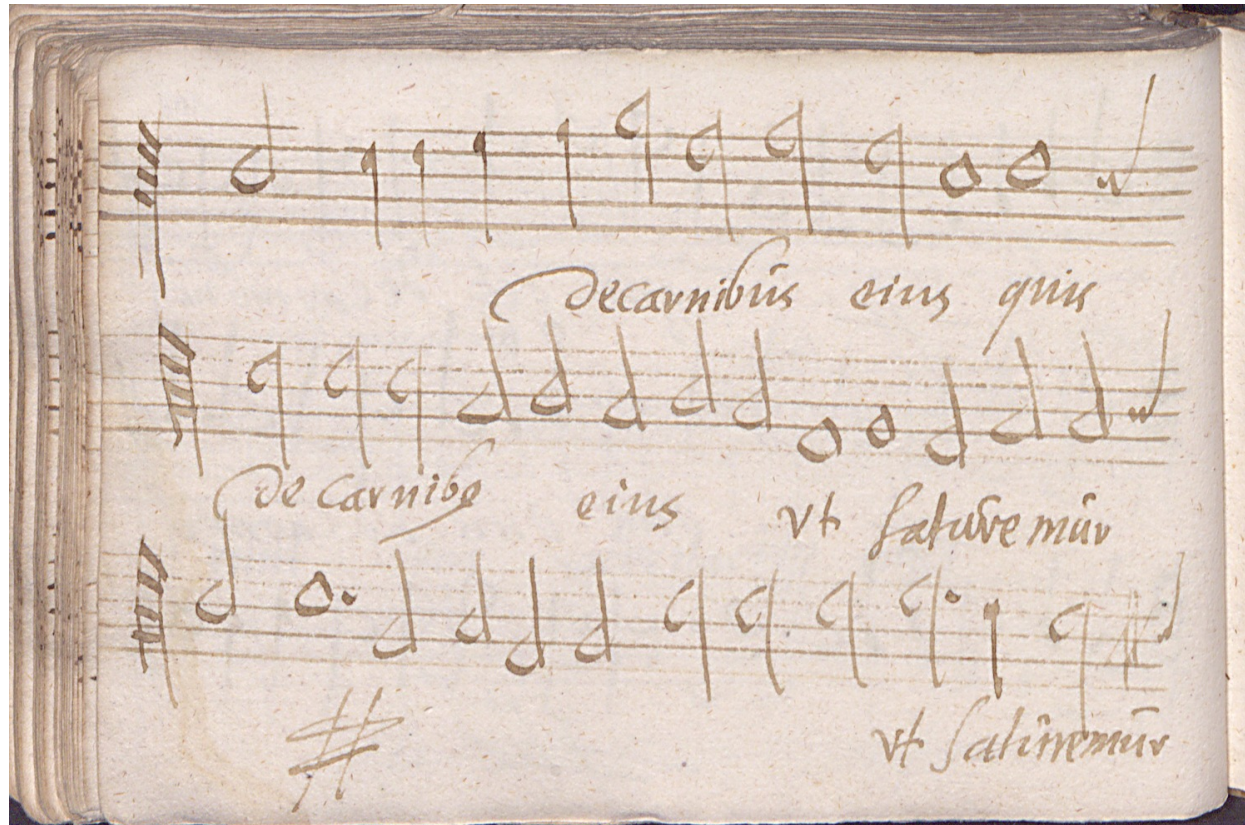 decarnibus eius quis
de carnibꝯ eius vt saturemur
vt saturemur